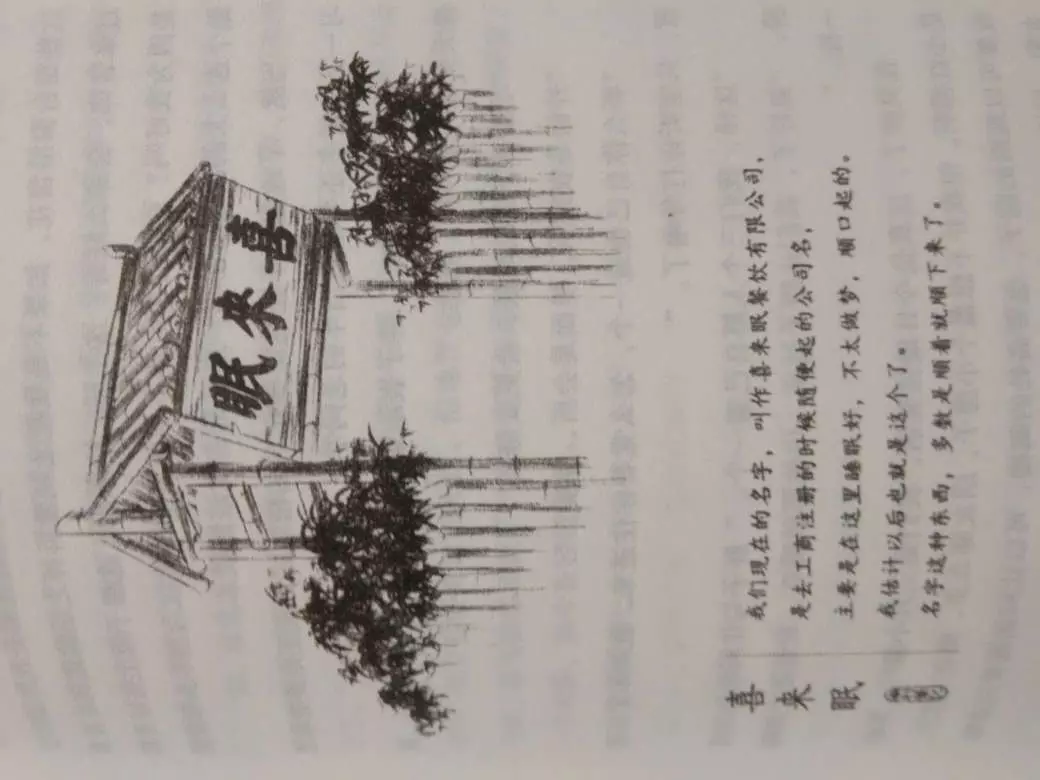 喜来眠
喜来眠
我们现在的名字，叫作喜来眠餐饮有限公司，
是去工商注册的时候随便起的公司名，
主要是在这里睡眠好，不太做梦，顺口起的。
我估计以后也就是这个了。
名字这种东西，多数是顺着就顺下来了。